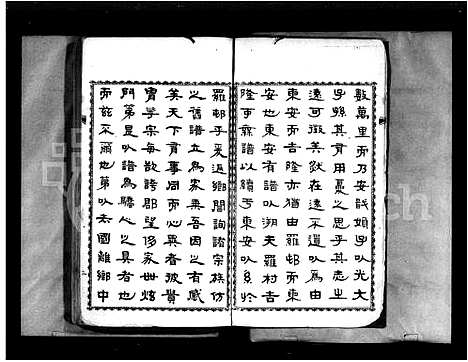 數萬里而乃安敢娛乎以光大
子孫其貽用憂之思乎其志之
遠可徵美然在遠不遺以為由
東安而吉隆亦猶由羅邨而東
安也東安有譜以溯夫羅村吉
隆可無譜以續乎東安以系於
羅邨乎爰返鄉閭詢諸宗族仿
之舊譜立為家乘吾因之有感
矣天下有事同而心異者彼貴
冑華宗每欲誇郡望侈家世炫
門第是以譜為驕心之具者也
而茲不爾也第以去國離鄉中